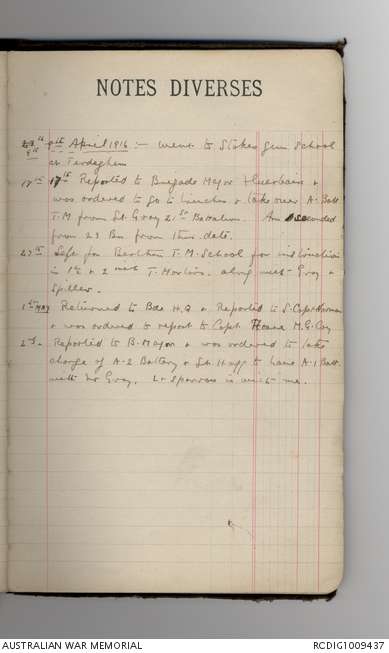 NOTES DIVERSES
9th April 1916 :- Went to Stokes Gun School
at Terdeghem
17th Reported to Brigade Major &
was ordered to go to trenches & take over A. Batt
T.M from Lt Gray 21st Battalion. Am seconded
from 23 Bn from this date.
Left for T. M. School for instruction
in 1½ & 2 inch T. Mortars. along with Gray &
Spiller.
1st MAY Returned to Bde H.Q & Reported to S. Capt
& was ordered to report to Capt M. G. Coy.
2nd - Reported to B. Major & was ordered to take
charge of A-2 Battery & Lt. to have A.1 Batt.
with Lt Gray. Lt Sparrow is with me.
AUSTRALIAN WAR MEMORIAL
RCDIG1009437